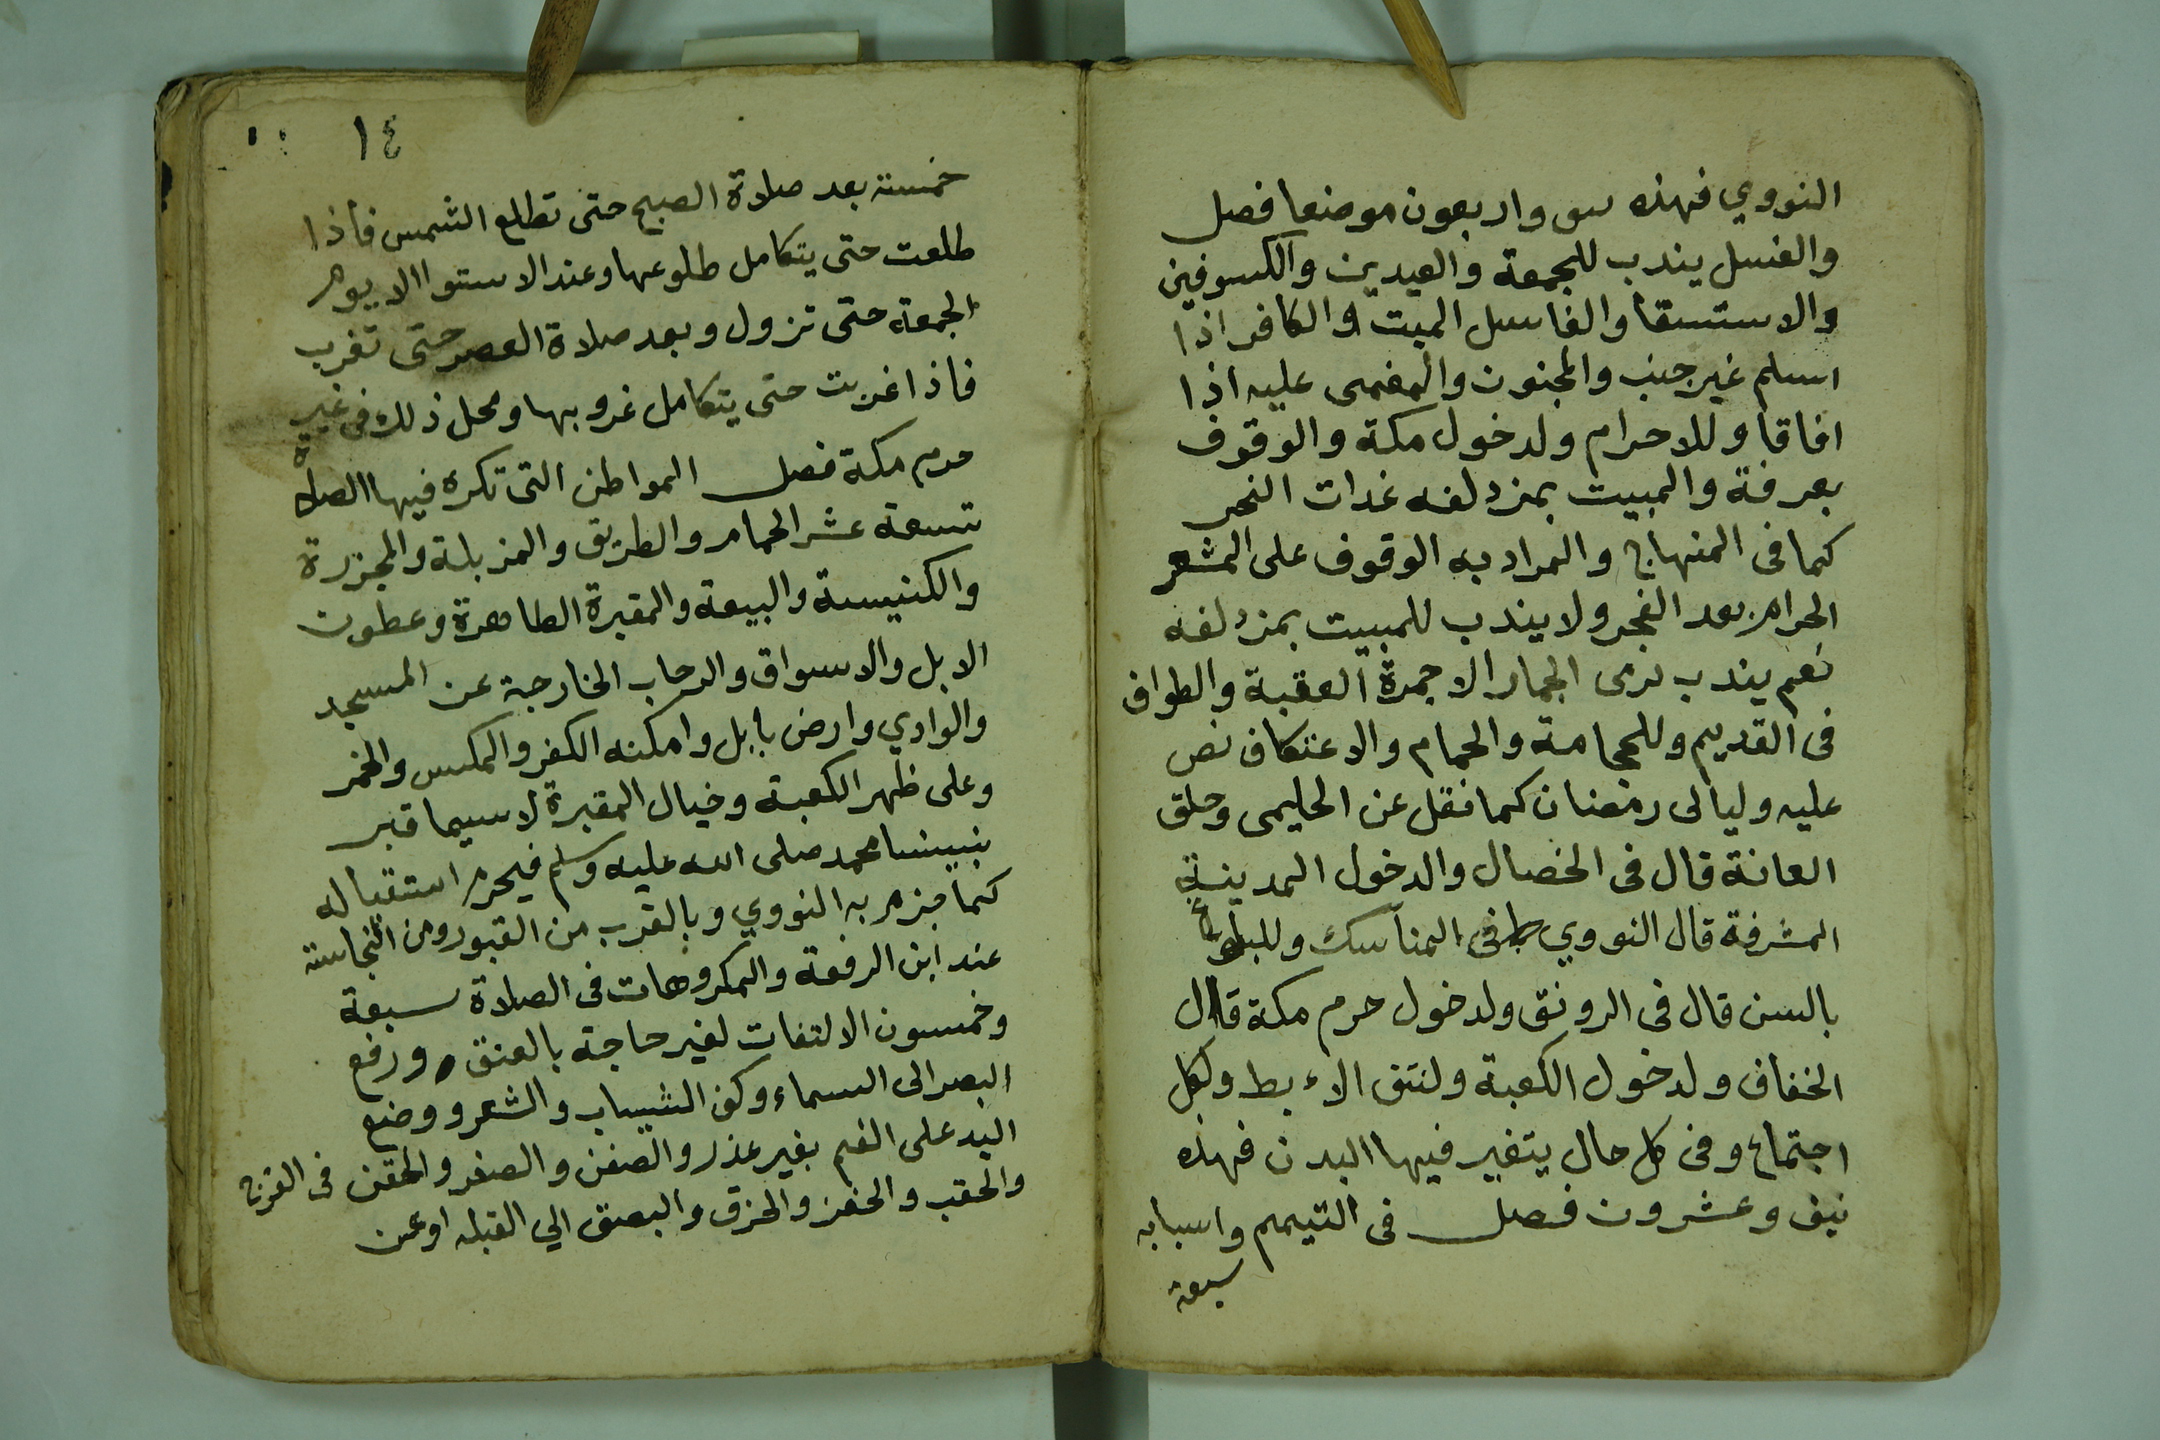 النووي فهذه ست واربعون موضعا فصل
والغسل يندب للجمعة والعيدين والكسوفين
والاستسقا والغاسل الميت والكافر اذا
اسلم غير جنب والمجنون والمغمى عليه اذا
افاقا وللاحرام ولدخول مكة والوقوف
بعرفة والمبيت بمزدلفه غدات النحر
كما فى المنهاج والمراد به الوقوف على المشعر
الحرام بعد الفجر ولا يندب للمبيت بمزدلفه
نعم يندب لرمى الجمار الا جمرة العقبة والطواف
فى القديم وللحجامة والحمام والاعتكاف نص
عليه وليالى رمضان كما نقل عن الحليمى وحلق
العانة قال فى الخصال والدخول المدينة
المشرفة قال النووي فى المناسك وللبلوغ
بالسن قال فى الرونق ولدخول حرم مكة قال
الخفاف ولدخول الكعبة ولنتف الابط ولكل
اجتماع وفى كل حال يتغير فيها البدن فهذه
نيف وعشرون فصل فى التيمم واسبابه
سبعة
١٤
خمسة بعد صلاة الصبح حتى تطلع الشمس فاذا
طلعت حتى يتكامل طلوعها وعند الاستوا الا يوم
الجمعة حتى تزول وبعد صلاة العصر حتى تغرب
فاذا غربت حتى يتكامل غروبها ومحل ذلك فى غير
حرم مكة فصل المواطن التى تكره فيها الصلاة
تسعة عشر الحمام والطريق والمزبلة والمجزرة
والكنيسة والبيعة والمقبرة الطاهرة وعطون
الابل والاسواق والرحاب الخارجة عن المسجد
والوادي وارض بابل وامكنه الكفر والمكس والخمر
وعلى ظهر الكعبة وخيال المقبرة لا سيما قبر
نبينا محمد صلى الله عليه وسلم فيحرم استقباله
كما جزم به النووي وبالقرب من القبور ومن النجاسة
عند ابن الرفعة والمكروهات فى الصلاة سبعة
وخمسون الالتفات لغير حاجة بالعنق ورفع
البصر الى السماء وكف الثياب والشعر ووضع
اليد على الفم بغير عذر والصفن والصفد والحقن فى
والحقب والحفز والحزق والبصق الي القبله او عن